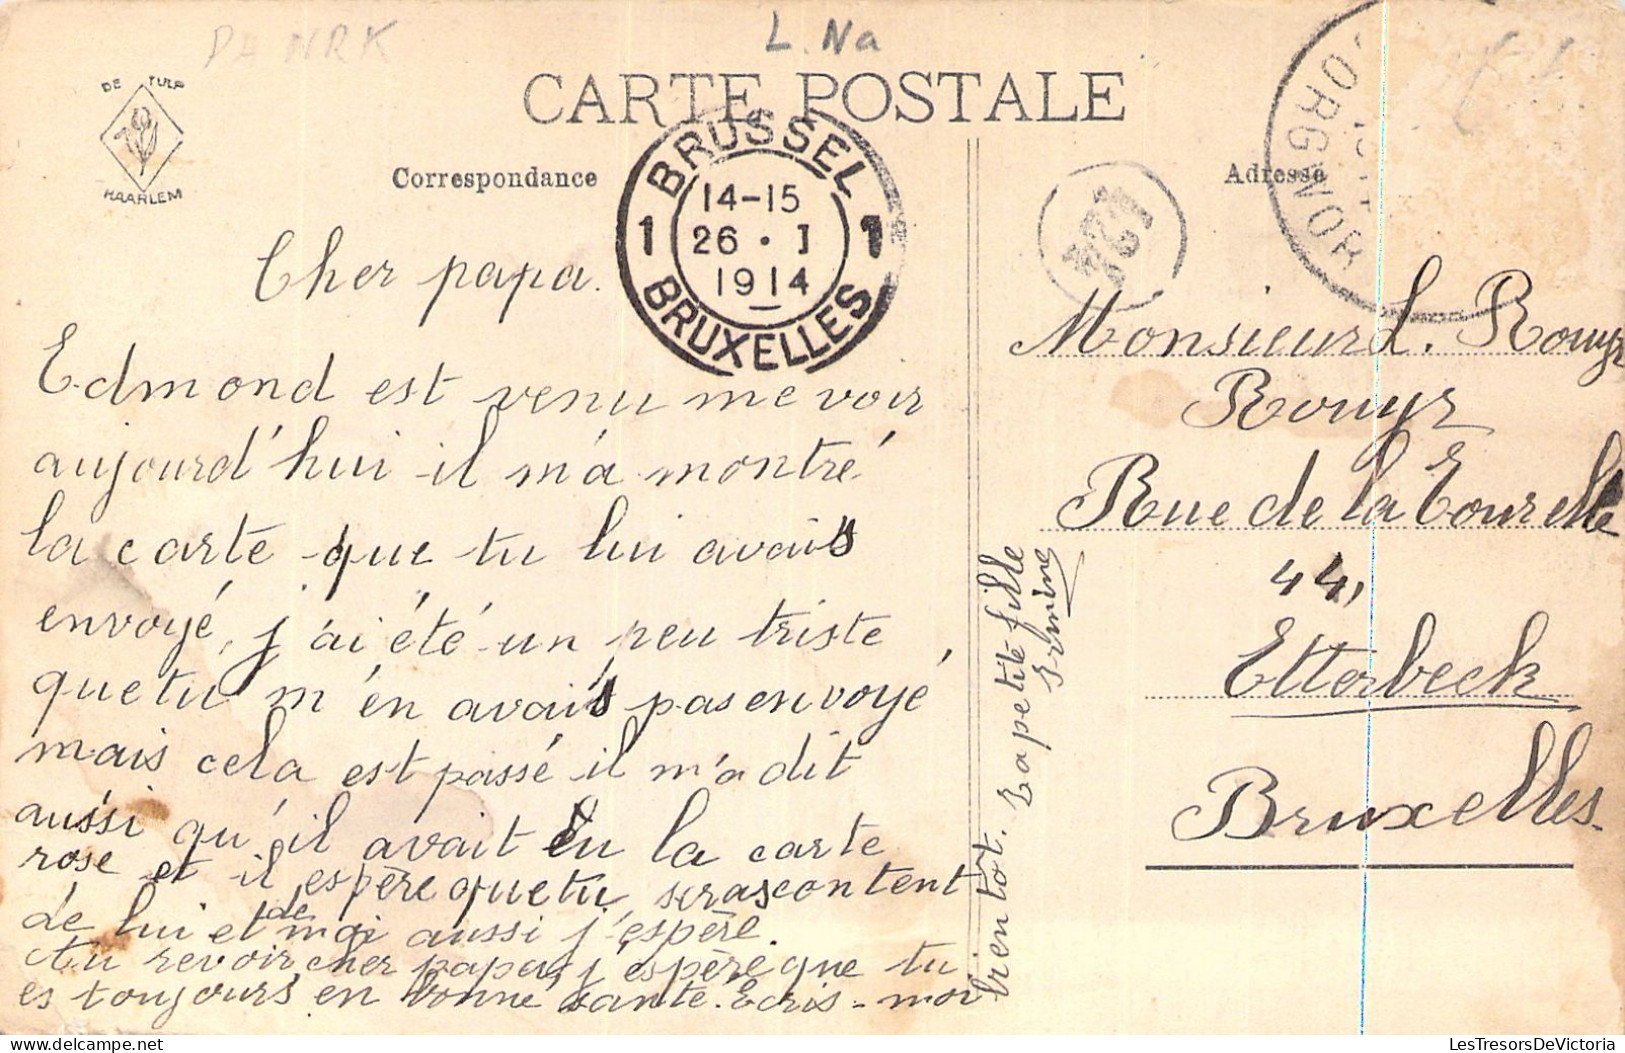 L. Na
DE TULP
HAARLEM
CARTE POSTALE
Correspondance
Adresse
BRUSSEL
14-15
1 26 · I 1
1914
BRUXELLES
Cher papa.
Edmond est venu me voir
aujourd'hui il m'a montré
la carte que tu lui avais
envoyé, j'ai été un peu triste
que tu m'en avais pas envoyé,
mais cela est passé il m'a dit
aussi qu'il avait eu la carte
rose et il espère que tu seras content
de lui et de moi aussi j'espère.
Au revoir cher papa, j'espère que tu
es toujours en bonne santé. Ecris-moi
bientôt. La petite fille
Irmine
Monsieur L. Rouyr
Rouyr
Rue de la Tourelle
44,
Etterbeck
Bruxelles.
LesTresorsDeVictoria
delcampe.net